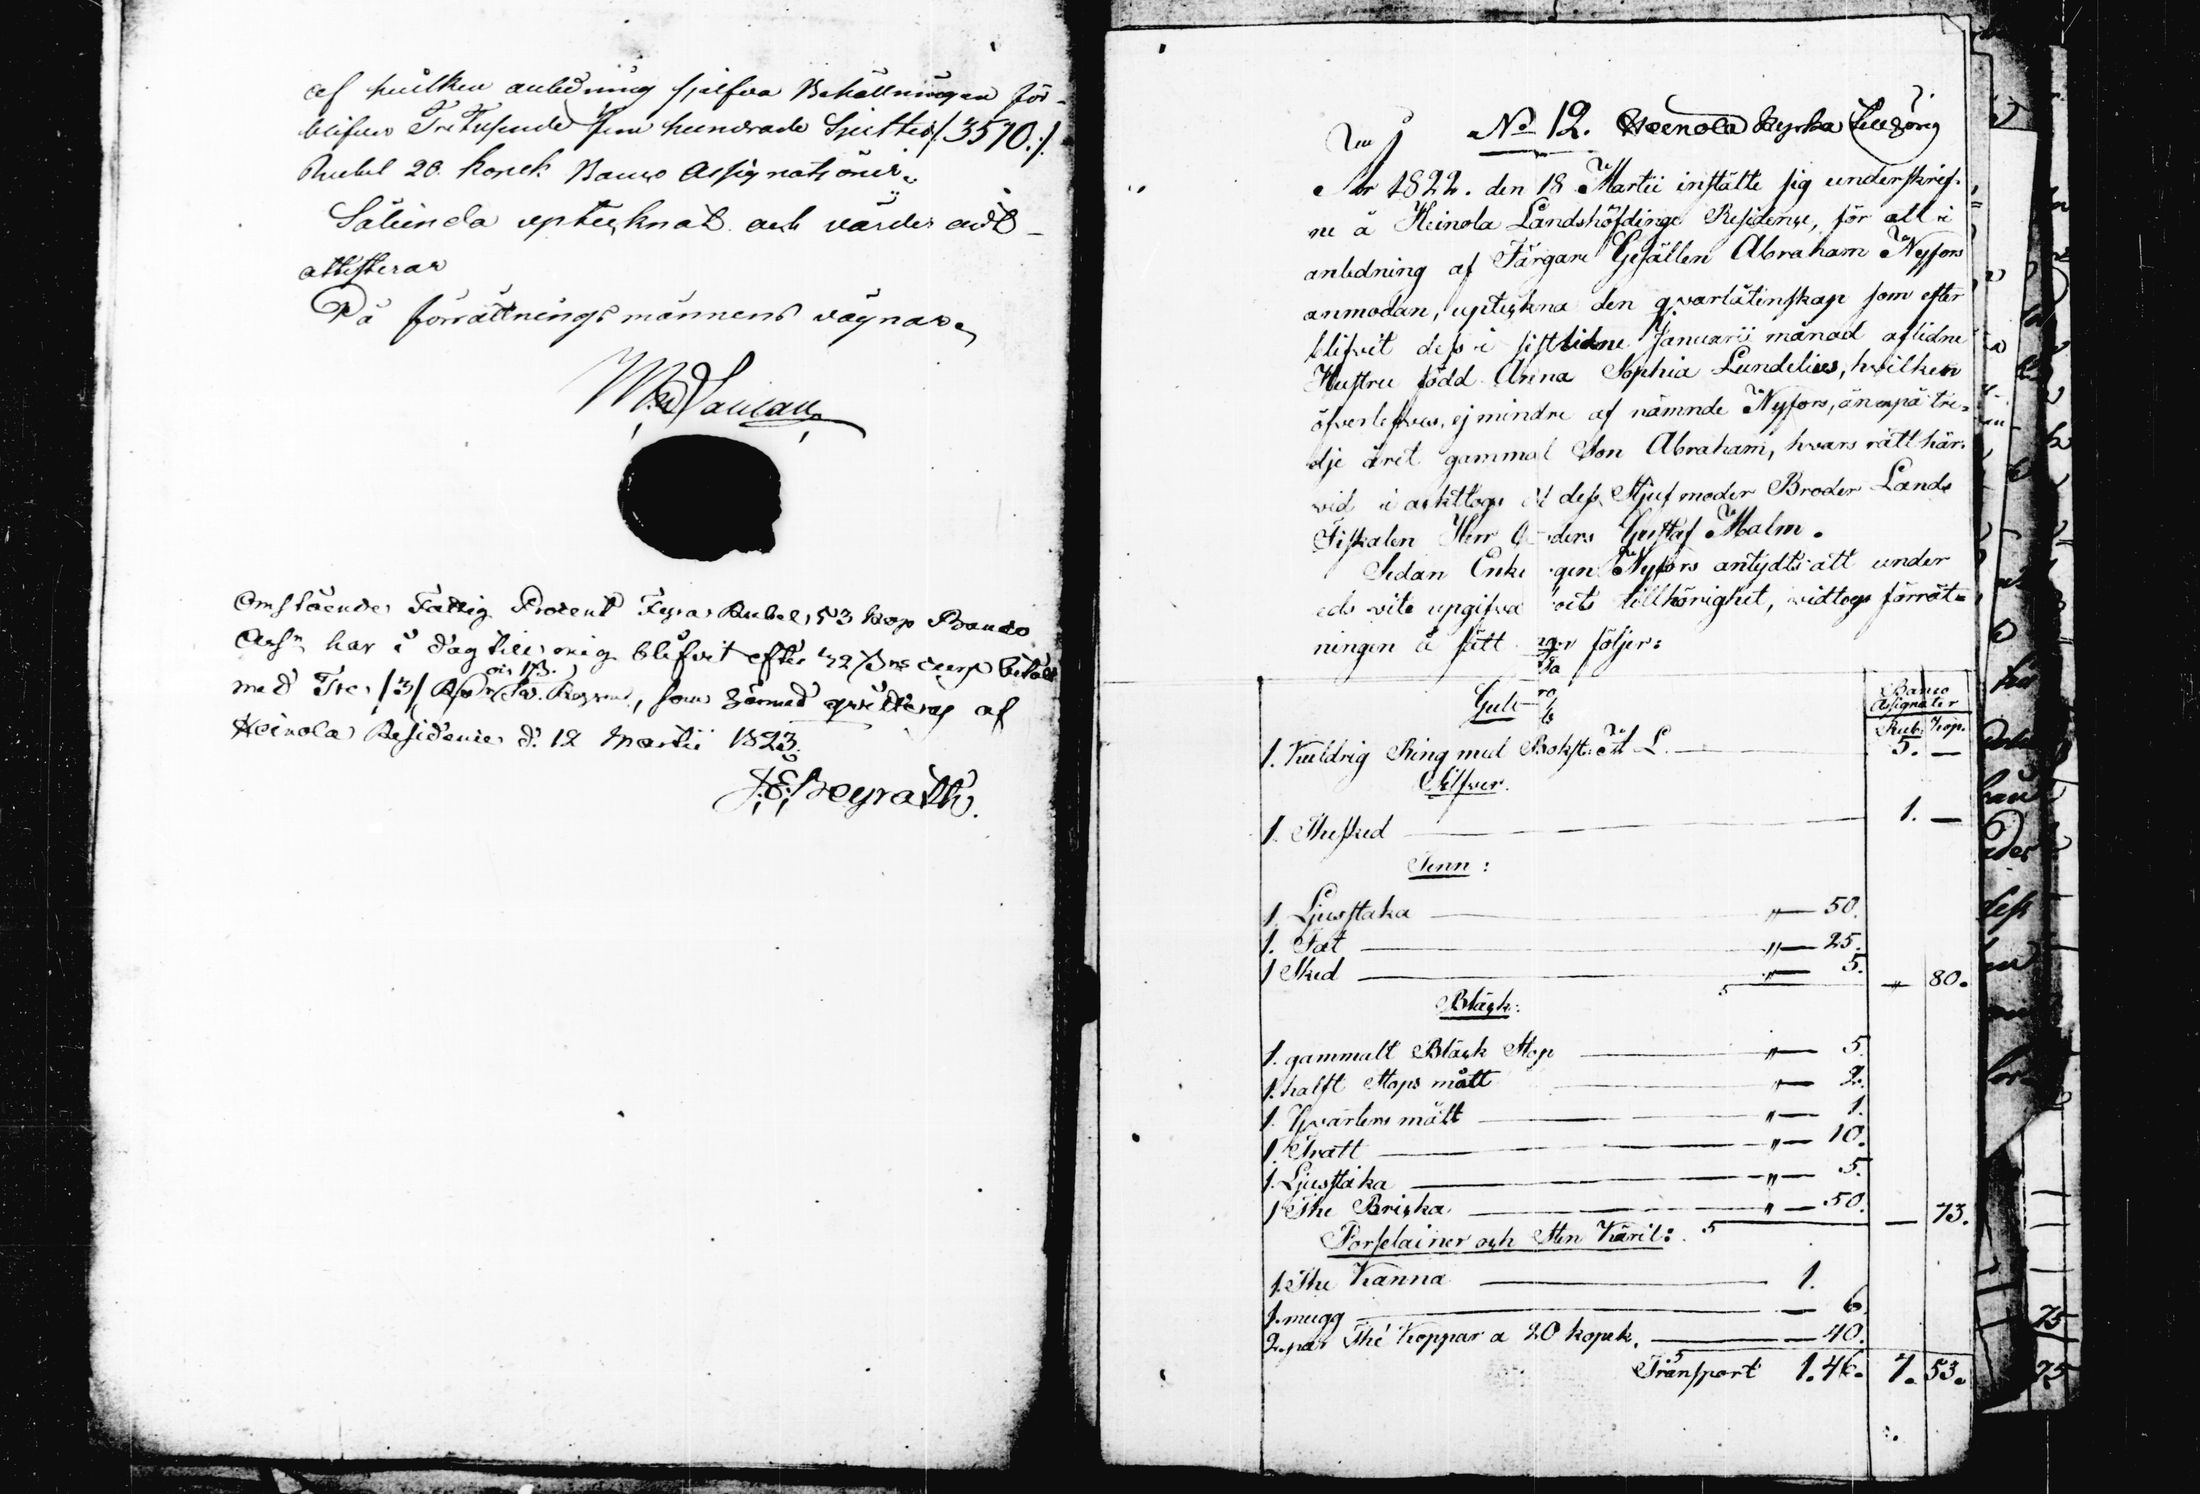 af hvilken anledning sjelfva Behållningen för-
blifver Tretusende fem hundrade Sjuttio /: 3570 :/
Rubel 20 kopek Banco Assignationer.
Sålunda upteknat och värderadt
attesteras
På förrättningsmännens vägnar
Omstående Fattig Procent Fyra Rubel 53 kop Banco
Assn har i dag till mig blifvit efter curs betalt
med Tre /3/ som härmed qvitteras af
Heinola Residence d. 12 Martii 1823.
No 12. Heinola Kyrka tillhörig
År 1822. den 18 Martii instälte sig underskref-
ne å Heinola Landshöfdinge Residence, för att i
anledning af Färgare Gesällen Abraham Nyfors
anmodan, uptekna den qvarlåtenskap som efter
blifvit dess i sistlidne Januarii månad aflidne
Hustru född Anna Sophia Lundelius, hvilken
öfverlefves, ej mindre af nämnde Nyfors, än en på tre-
dje året gammal Son Abraham, hvars rätt här-
vid i akttogs af dess Stjufmoder Broder Lands
Fiskalen Herr Anders Gustaf Malm.
Sedan Enklingen Nyfors antydts att under
eds vite upgifva boets tillhörighet, vidtogs förrätt-
ningen å sätt som följer:
Banco
Assignater
Guld
Rub. Kop.
1. Guldrig Ring med Bokst. M L. 5. —
Silfver.
1. Thesked 1. —
Tenn:
1. Ljusstaka „ — 50.
1. Fat „ — 25.
1 Sked „ — 5. „ 80.
Bläck:
1. gammalt Bläck Stop „ — 5.
1. halft Stops mått „ — 2.
1. Qvarters mått „ — 1.
1. Tratt „ — 10.
1. Ljusstaka „ — 5.
1 The Bricka „ — 50. — 73.
Porselainer och Sten Käril:
1. The Kanna 1.
1. mugg — 6.
2. par Thé Koppar a 20 kopek. — 40.
Transport 1.46. 7. 53.